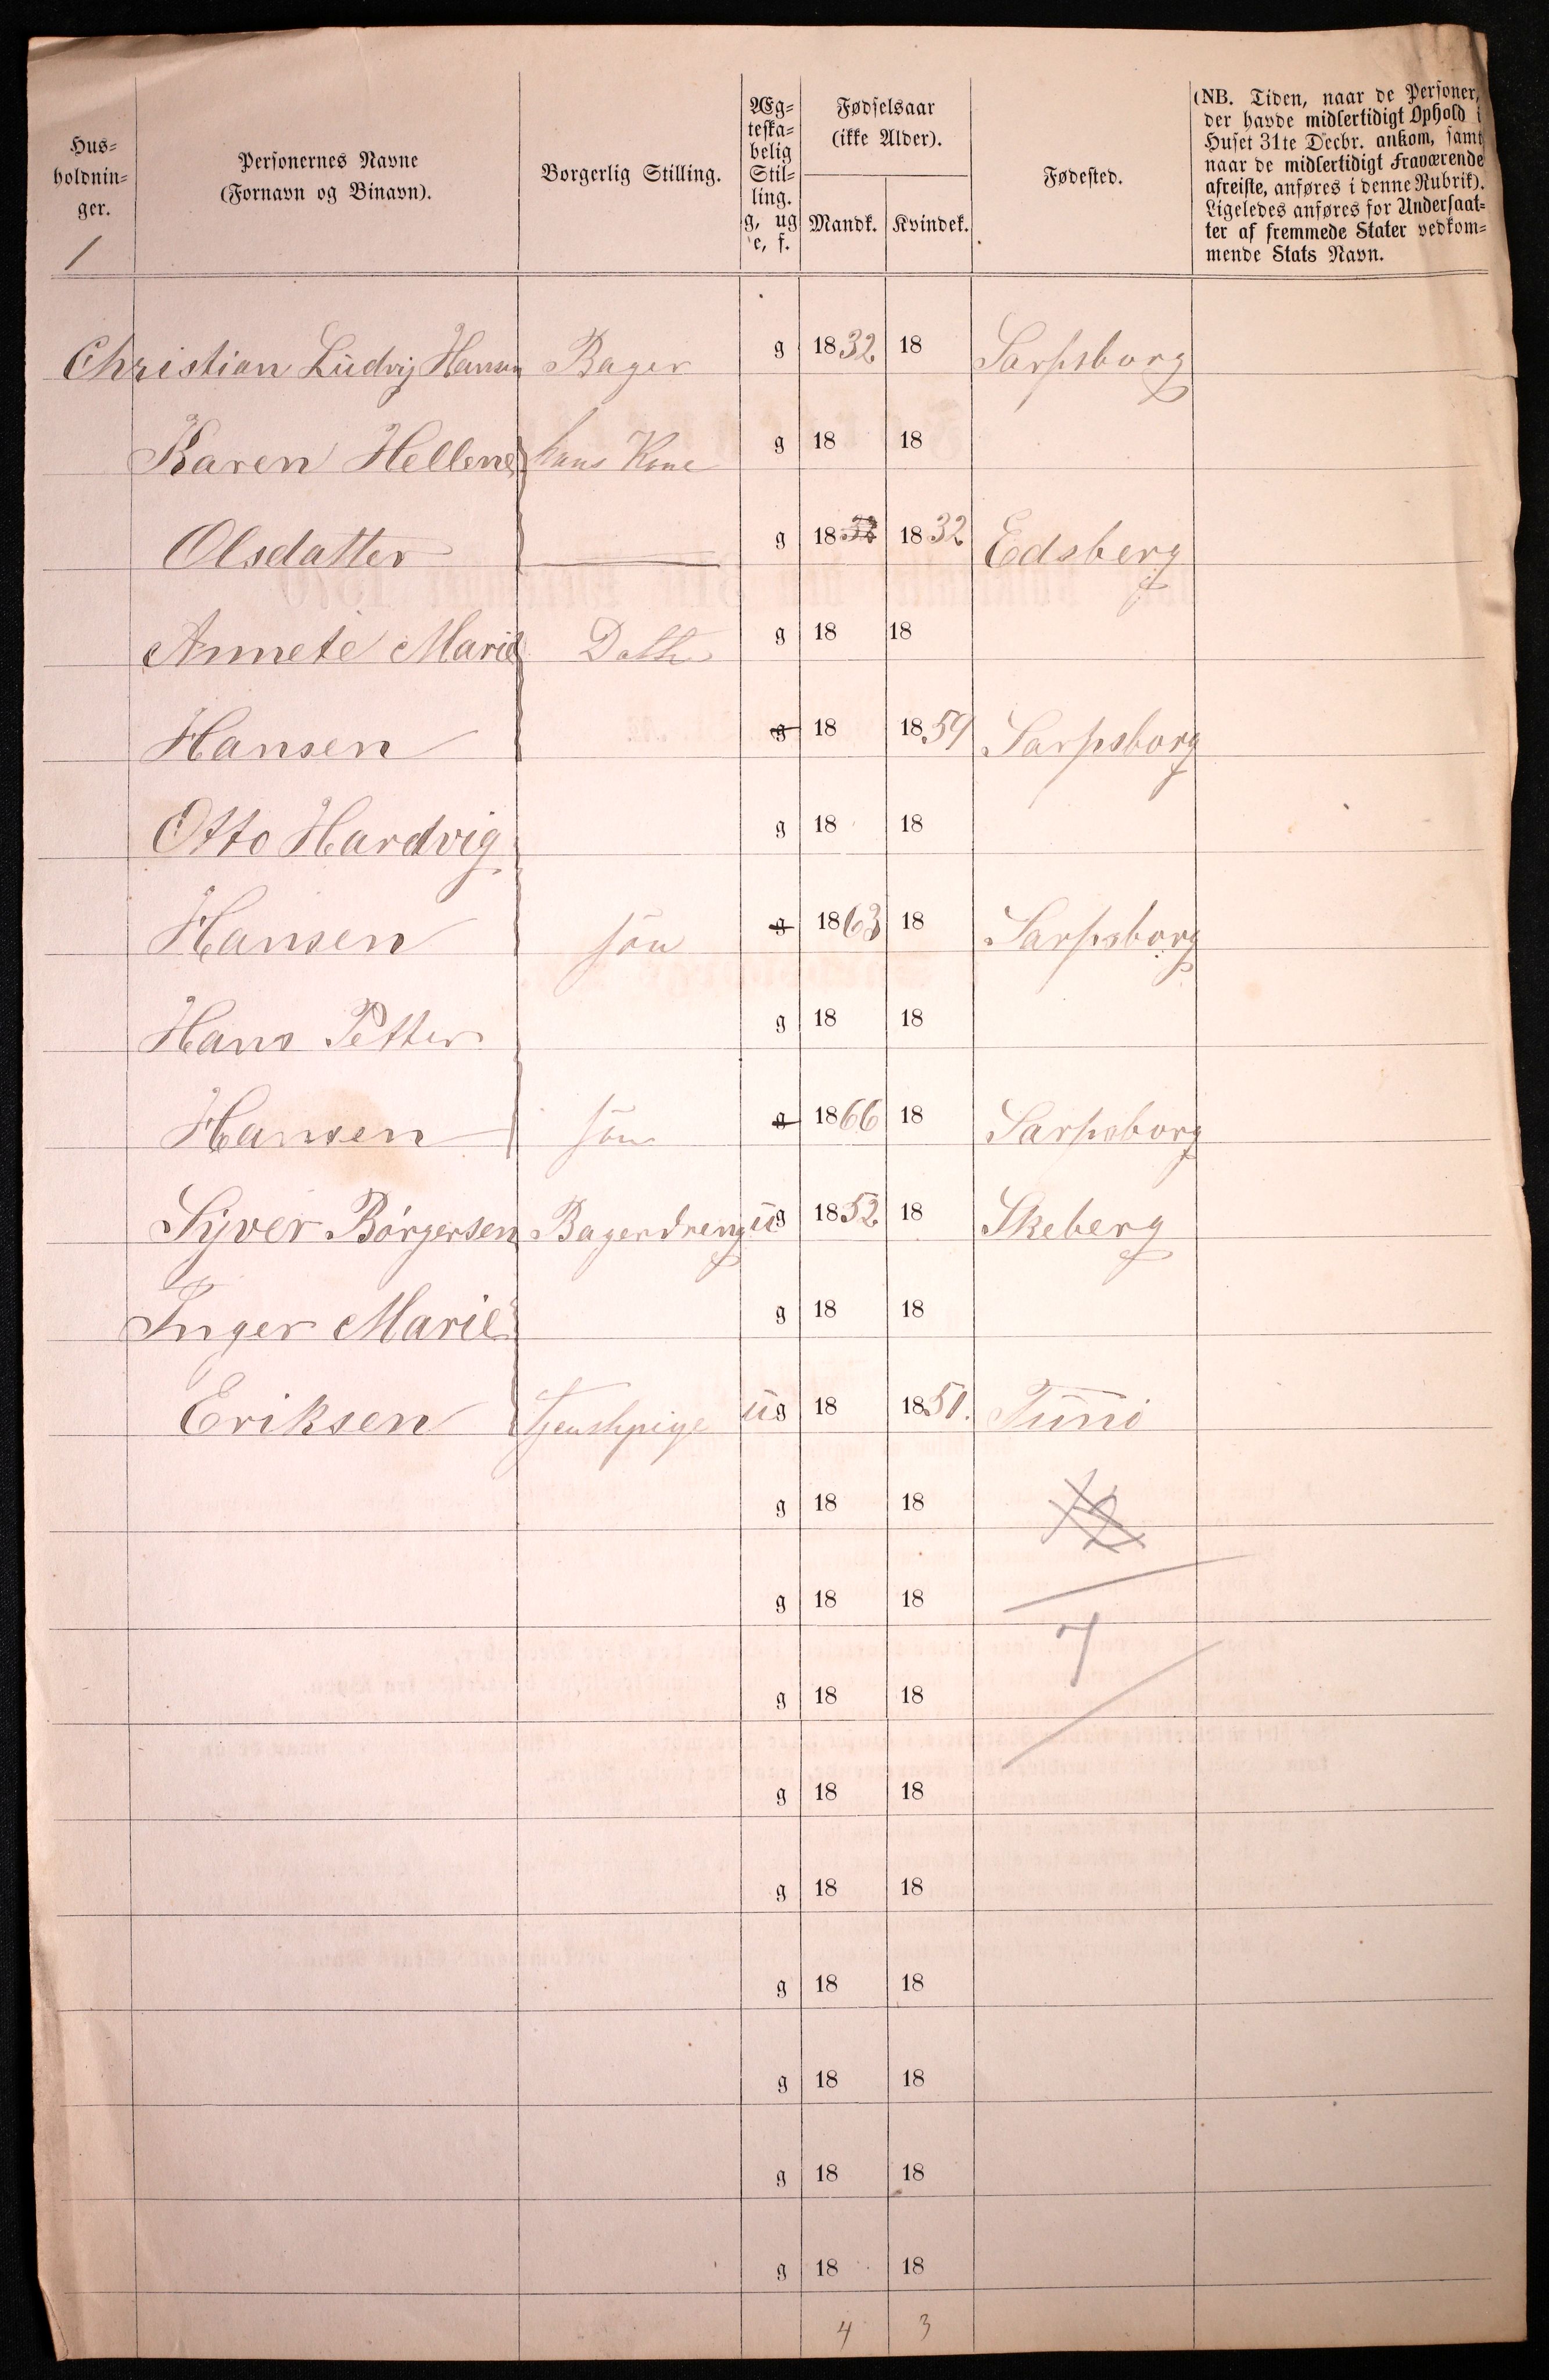 Hus-
holdnin-
ger.
1
Personernes Navne
(Fornavn og Binavn).
Borgerlig Stilling.
Æg-
teska-
belig
Stil-
ling.
g, ug
e, f.
Fødselsaar
(ikke Alder).
Mandk. Kvindek.
Fødested.
(NB. Tiden, naar de Personer,
der havde midlertidigt Ophold i
Huset 31te Decbr. ankom, samt
naar de midlertidigt Fraværende
afreiste, anføres i denne Rubrik).
Ligeledes anføres for Undersaat-
ter af fremmede Stater vedkom-
mende Stats Navn.
Christian Ludvig Hansen Bager g 1832 18 Sarpsborg
Karen Hellene hans Kone g 18 18
Olsdatter g 1832 1832 Edsberg
Annete Marie Datter g 18 18
Hansen g 18 1859 Sarpsborg
Otto Hardvig g 18 18
Hansen søn g 1863 18 Sarpsborg
Hans Petter g 18 18
Hansen søn g 1866 18 Sarpsborg
Syver Börgersen Bagerdreng ug 1852 18 Skeberg
Inger Marie g 18 18
Eriksen Tjenstpige ug 18 1851. Tunö
g 18 18 12
g 18 18
g 18 18 7
g 18 18
g 18 18
g 18 18
g 18 18
g 18 18
g 18 18
4 3